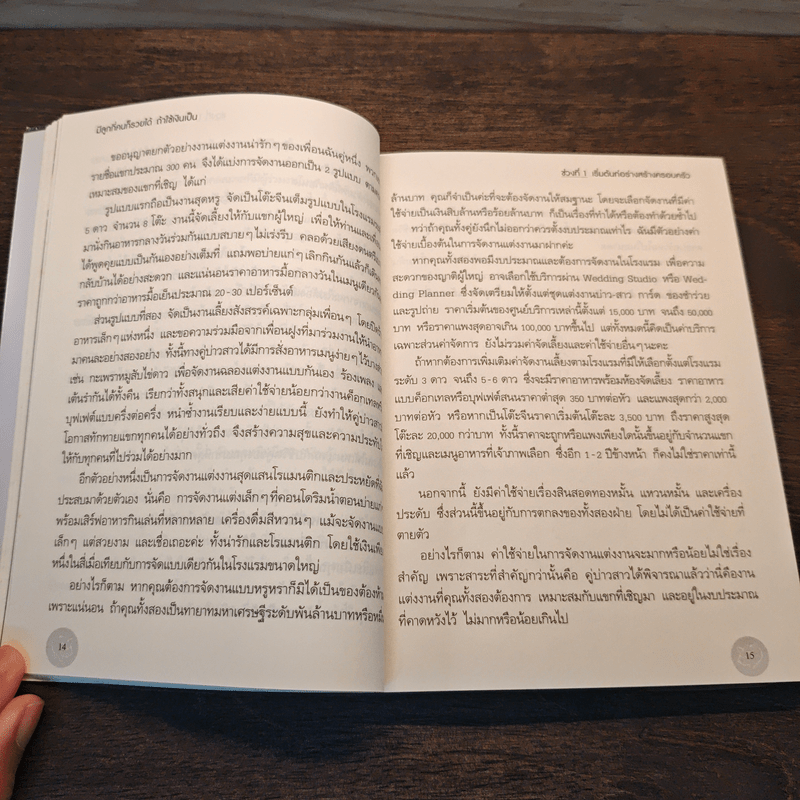 มีลูกกี่คนก็รวยได้ ถ้าใช้เงินเป็น
ขออนุญาตยกตัวอย่างงานแต่งงานน่ารักๆ ของเพื่อนฉันคู่หนึ่ง
รายชื่อแขกประมาณ 300 คน จึงได้แบ่งการจัดงานออกเป็น 2 รูปแบบ
เหมาะสมของแขกที่เชิญ ได้แก่
รูปแบบแรกถือเป็นงานสุดหรู จัดเป็นโต๊ะจีนเต็มรูปแบบในโรงแรม
5 ดาว จำนวน 8 โต๊ะ งานนี้จัดเลี้ยงให้กับแขกผู้ใหญ่ เพื่อให้ท่านและเพื่อน
มานั่งกินอาหารกลางวันร่วมกันแบบสบายๆ ไม่เร่งรีบ คลอด้วยเสียงดนตรี
ได้พูดคุยแบบเป็นกันเองอย่างเต็มที่ แถมพอบ่ายแก่ๆ เลิกกินกันแล้วก็
กลับบ้านได้อย่างสะดวก และแน่นอนราคาอาหารมื้อกลางวันในเมนูเดียวกัน
ราคาถูกกว่าอาหารมื้อเย็นประมาณ 20-30 เปอร์เซ็นต์
ส่วนรูปแบบที่สอง จัดเป็นงานเลี้ยงสังสรรค์เฉพาะกลุ่มเพื่อนๆ โดย
อาหารเล็กๆ แห่งหนึ่ง และขอความร่วมมือจากเพื่อนฝูงที่มาร่วมงานให้นำ
มาคนละอย่างสองอย่าง ทั้งนี้ทางคู่บ่าวสาวได้มีการสั่งอาหารเมนูง่ายๆ ไว้
เช่น กะเพราหมูสับไข่ดาว เพื่อจัดงานฉลองแต่งงานแบบกันเอง ร้องเพลง
เต้นรำกันได้ทั้งคืน เรียกว่าทั้งสนุกและเสียค่าใช้จ่ายน้อยกว่างานค็อกเทล
บุฟเฟต์แบบครึ่งต่อครึ่ง หนำซ้ำงานเรียบและง่ายแบบนี้ ยังทำให้คู่บ่าวสาว
โอกาสทักทายแขกทุกคนได้อย่างทั่วถึง จึงสร้างความสุขและความประทับใจ
ให้กับทุกคนที่ไปร่วมได้อย่างมาก
อีกตัวอย่างหนึ่งเป็นการแต่งงานสุดแสนโรแมนติกและประหยัดที่
ประสบมาด้วยตัวเอง นั่นคือ การจัดงานแต่งเล็กๆ ที่คอนโดริมน้ำตอนบ่ายแก่ๆ
พร้อมเสิร์ฟอาหารกินเล่นที่หลากหลาย เครื่องดื่มสีหวานๆ แม้จะจัดงานแบบ
เล็กๆ แต่สวยงาม และเชื่อเถอะค่ะ ทั้งน่ารักและโรแมนติก โดยใช้เงินเพียง
หนึ่งในสี่เมื่อเทียบกับการจัดแบบเดียวกันในโรงแรมขนาดใหญ่
อย่างไรก็ตาม หากคุณต้องการจัดงานแบบหรูหราก็มิได้เป็นของต้องห้าม
เพราะแน่นอน ถ้าคุณทั้งสองเป็นทายาทมหาเศรษฐีระดับพันล้านบาทหรือหมื่น
14
ช่วงที่ 1 เริ่มต้นก่อร่างสร้างครอบครัว
ล้านบาท คุณก็จำเป็นค่ะที่จะต้องจัดงานให้สมฐานะ โดยจะเลือกจัดงานที่มีค่า
ใช้จ่ายเป็นเงินสิบล้านหรือร้อยล้านบาท ก็เป็นเรื่องที่ทำได้หรือต้องทำด้วยซ้ำไป
ทว่าถ้าคุณทั้งคู่ยังนึกไม่ออกว่าควรตั้งงบประมาณเท่าไร ฉันมีตัวอย่างค่า
ใช้จ่ายเบื้องต้นในการจัดงานแต่งงานมาฝากค่ะ
หากคุณทั้งสองพอมีงบประมาณและต้องการจัดงานในโรงแรม เพื่อความ
สะดวกของญาติผู้ใหญ่ อาจเลือกใช้บริการผ่าน Wedding Studio หรือ Wed-
ding Planner ซึ่งจัดเตรียมให้ตั้งแต่ชุดแต่งงานบ่าว-สาว การ์ด ของชำร่วย
และรูปถ่าย ราคาเริ่มต้นของศูนย์บริการเหล่านี้ตั้งแต่ 15,000 บาท จนถึง 50,000
บาท หรือราคาแพงสุดอาจเกิน 100,000 บาทขึ้นไป แต่ทั้งหมดนี้คิดเป็นค่าบริการ
เฉพาะส่วนค่าจัดการ ยังไม่รวมค่าจัดเลี้ยงและค่าใช้จ่ายอื่นๆ นะคะ
ถ้าหากต้องการเพิ่มเติมค่าจัดเลี้ยงตามโรงแรมที่มีให้เลือกตั้งแต่โรงแรม
ระดับ 3 ดาว จนถึง 5-6 ดาว ซึ่งจะมีราคาอาหารพร้อมห้องจัดเลี้ยง ราคาอาหาร
แบบค็อกเทลหรือบุฟเฟต์สนนราคาต่ำสุด 350 บาทต่อหัว และแพงสุดกว่า 2,000
บาทต่อหัว หรือหากเป็นโต๊ะจีนราคาเริ่มต้นโต๊ะละ 3,500 บาท ถึงราคาสูงสุด
โต๊ะละ 20,000 กว่าบาท ทั้งนี้ราคาจะถูกหรือแพงเพียงใดนั้นขึ้นอยู่กับจำนวนแขก
ที่เชิญและเมนูอาหารที่เจ้าภาพเลือก ซึ่งอีก 1-2 ปีข้างหน้า ก็คงไม่ใช่ราคาเท่านี้
แล้ว
นอกจากนี้ ยังมีค่าใช้จ่ายเรื่องสินสอดทองหมั้น แหวนหมั้น และเครื่อง
ประดับ ซึ่งส่วนนี้ขึ้นอยู่กับการตกลงของทั้งสองฝ่าย โดยไม่ได้เป็นค่าใช้จ่ายที่
ตายตัว
อย่างไรก็ตาม ค่าใช้จ่ายในการจัดงานแต่งงานจะมากหรือน้อยไม่ใช่เรื่อง
สำคัญ เพราะสาระที่สำคัญกว่านั้นคือ คู่บ่าวสาวได้พิจารณาแล้วว่านี่คืองาน
แต่งงานที่คุณทั้งสองต้องการ เหมาะสมกับแขกที่เชิญมา และอยู่ในงบประมาณ
ที่คาดหวังไว้ ไม่มากหรือน้อยเกินไป
15